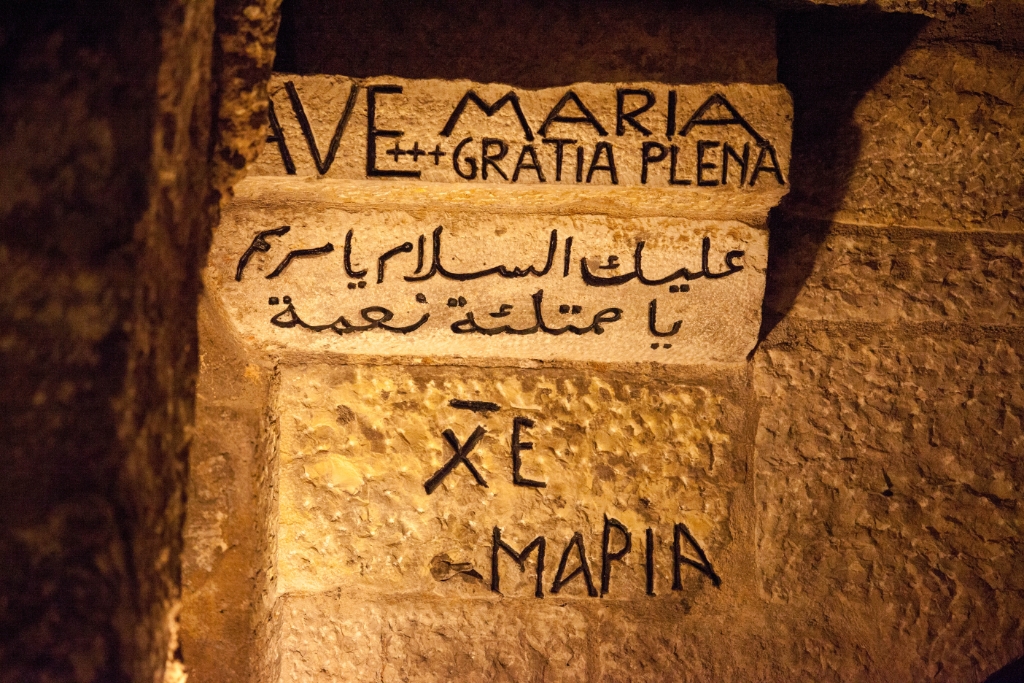 AVE MARIA
+++ GRATIA PLENA
عليك السلام يا مريم
يا ممتلئة نعمة
X̅E
MAPIA